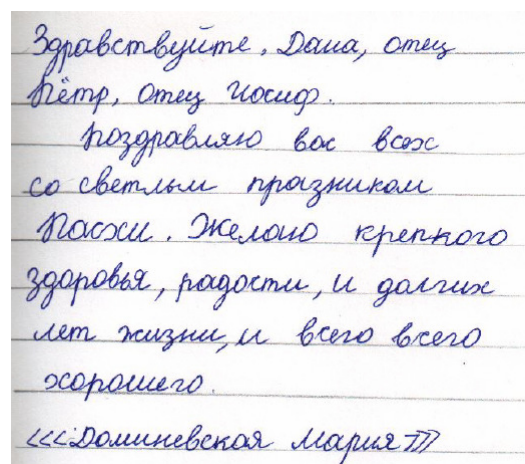 Здравствуйте, Дана, отец
Пётр, отец Иосиф.
Поздравляю вас всех
со светлым празником
Пасхи. Желаю крепкого
здоровья, радости, и долгих
лет жизни, и всего всего
хорошего.
<<<Доминевская Мария>>>